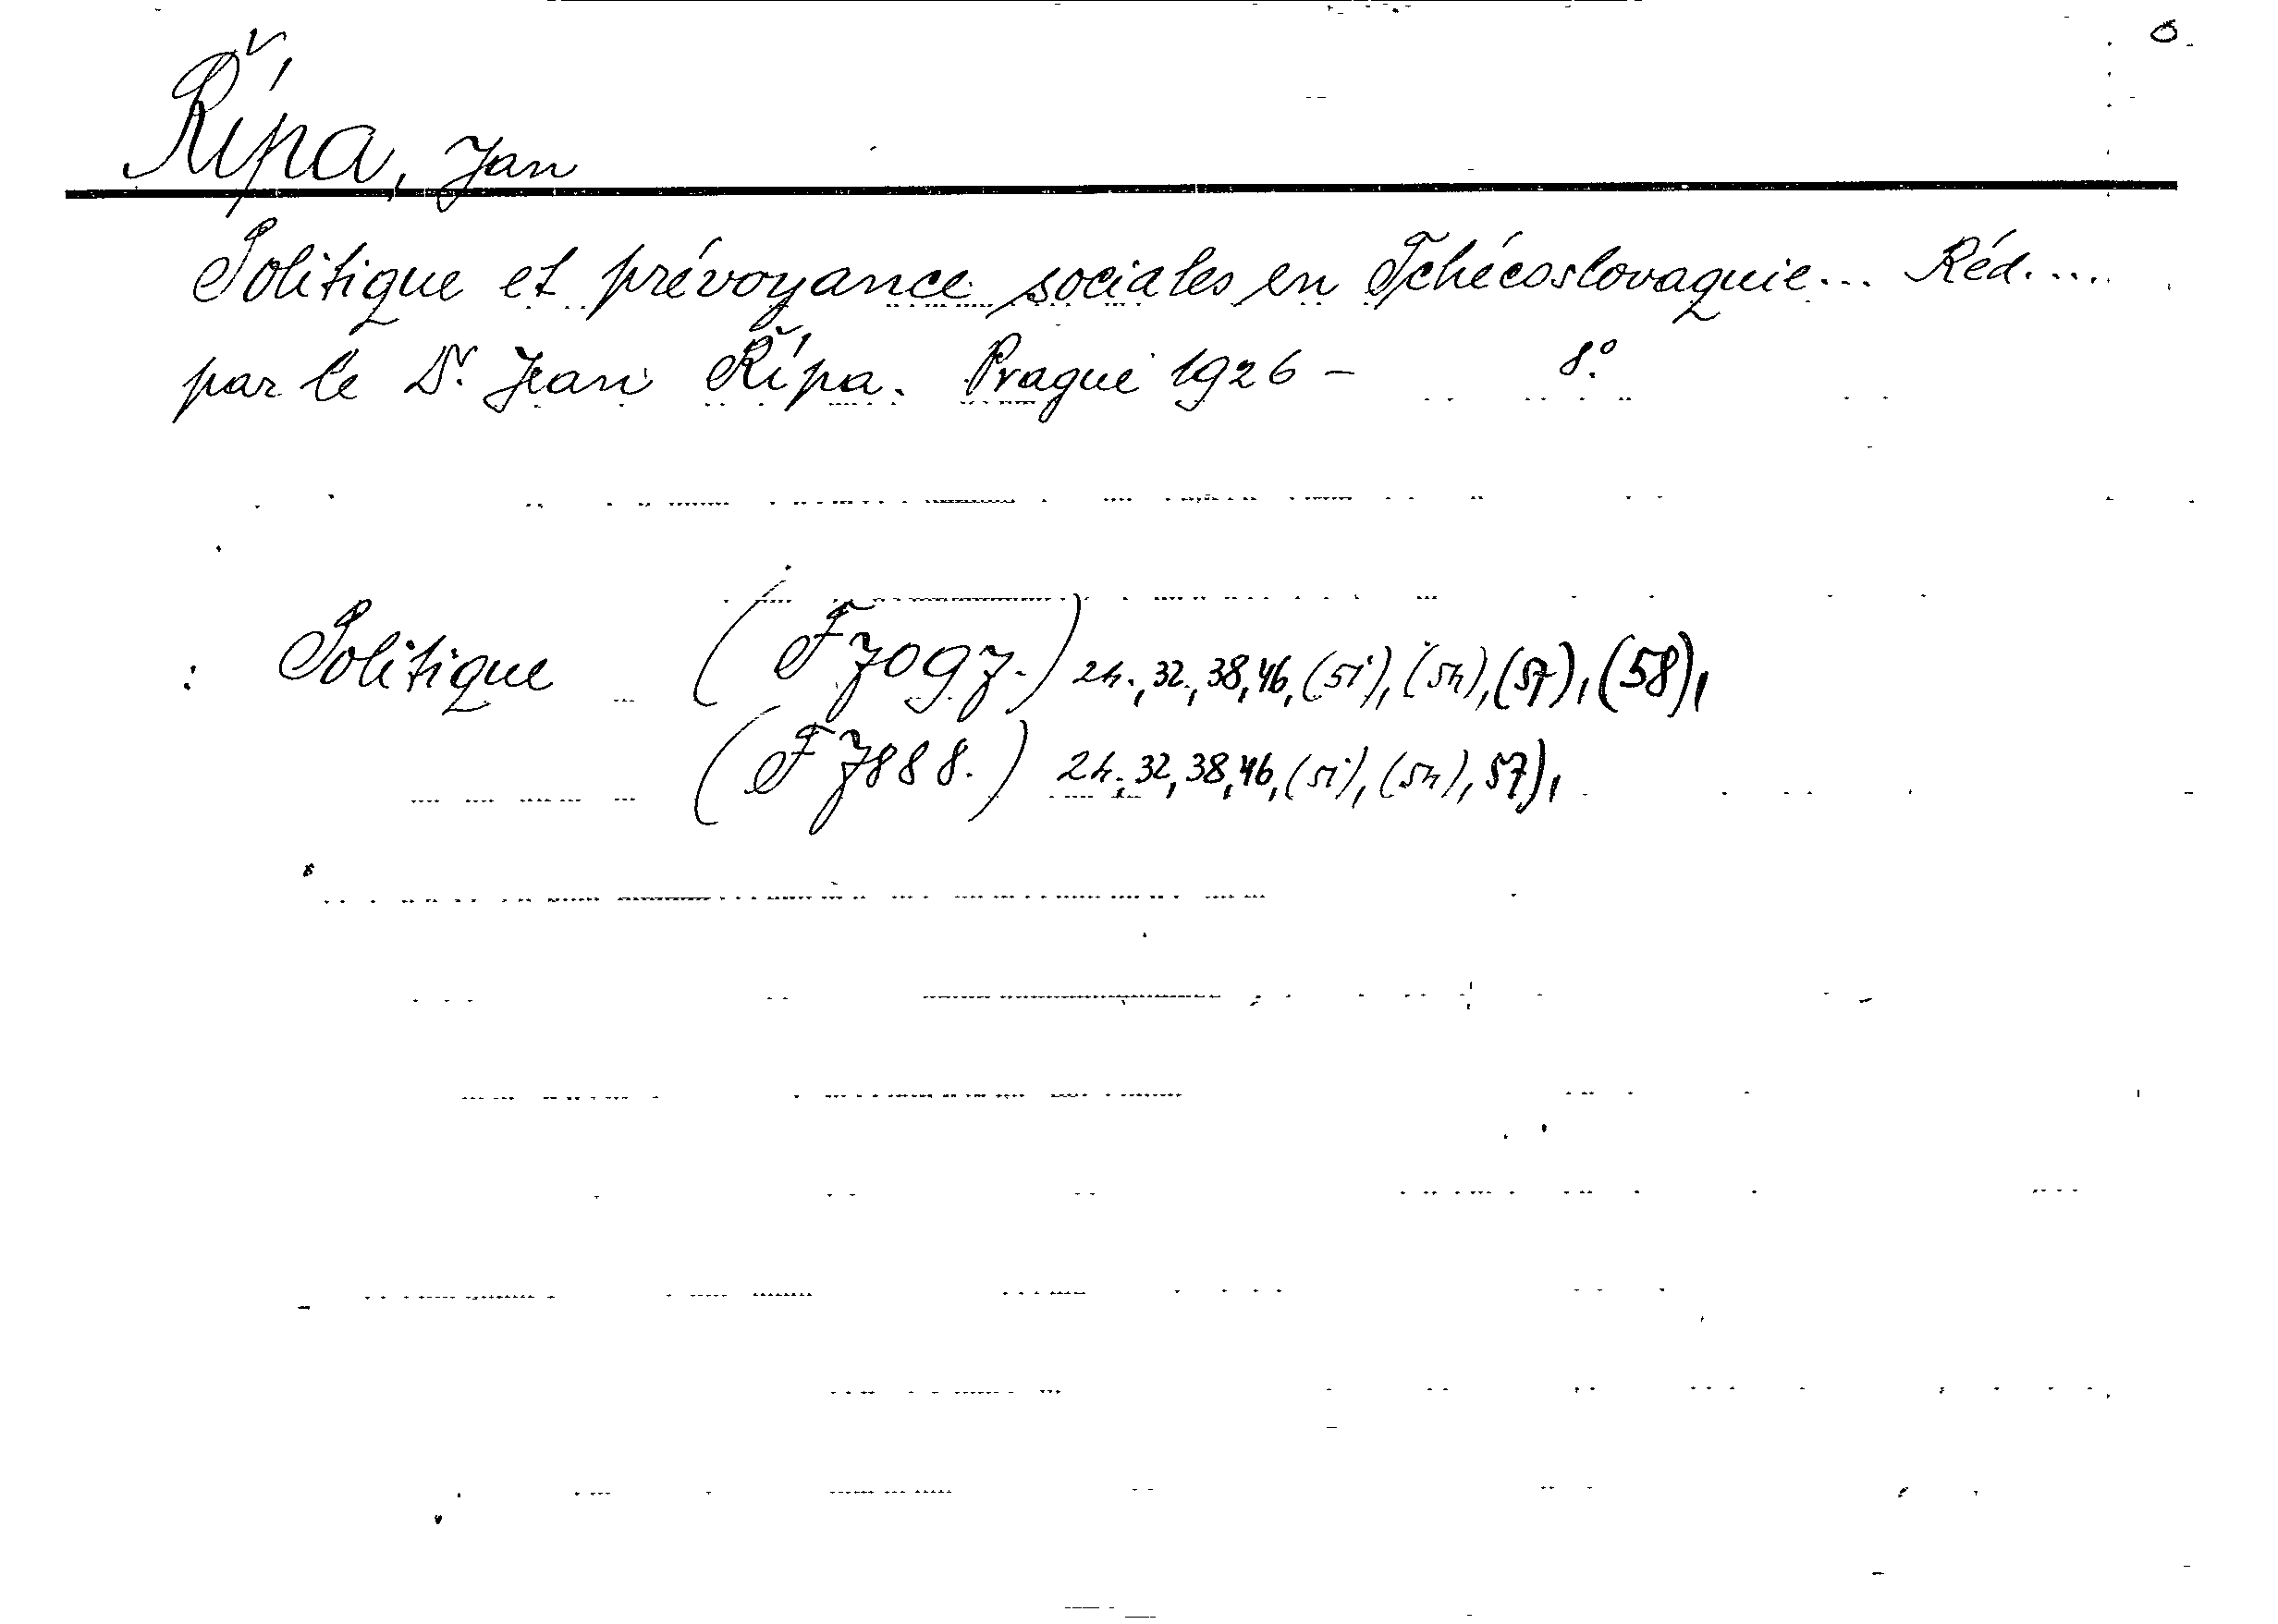 Řípa, Jan
Politique et prévoyance sociales en Tchécoslovaquie... Réd....
par le Dr. Jean Řípa. Prague 1926 – 8.°
: Politique (F 7097.) 24., 32., 38, 46, (51), (54), (57), (58),
(F 7888.) 24., 32, 38, 46, (51), (54), 57),